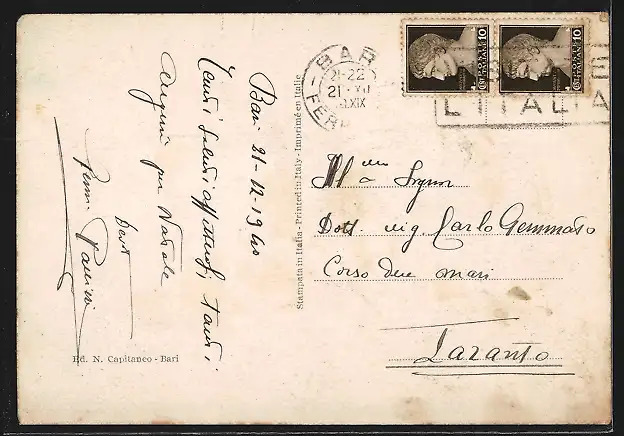 Bari 21-12-1940
Tanti saluti affettuosi, tanti
auguri per Natale
Dev
Ed. N. Capitaneo - Bari
Stampata in Italia - Printed in Italy - Imprimé en Italie
BARI
21-22
21 XII
XIX
FERR
10
POSTE ITALIANE
10
POSTE ITALIANE
L'ITALIA
Ill
Dott. ing. Carlo Gennaro
Corso due mari
Taranto